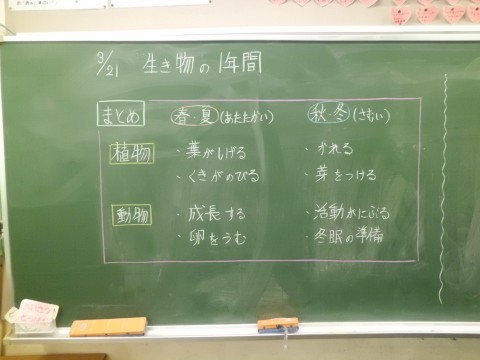 3/21 生き物の1年間
まとめ 春・夏(あたたかい) 秋・冬(さむい)
植物 ・葉がしげる ・かれる
・くきがのびる ・芽をつける
動物 ・成長する ・活動がにぶる
・卵をうむ ・冬眠の準備